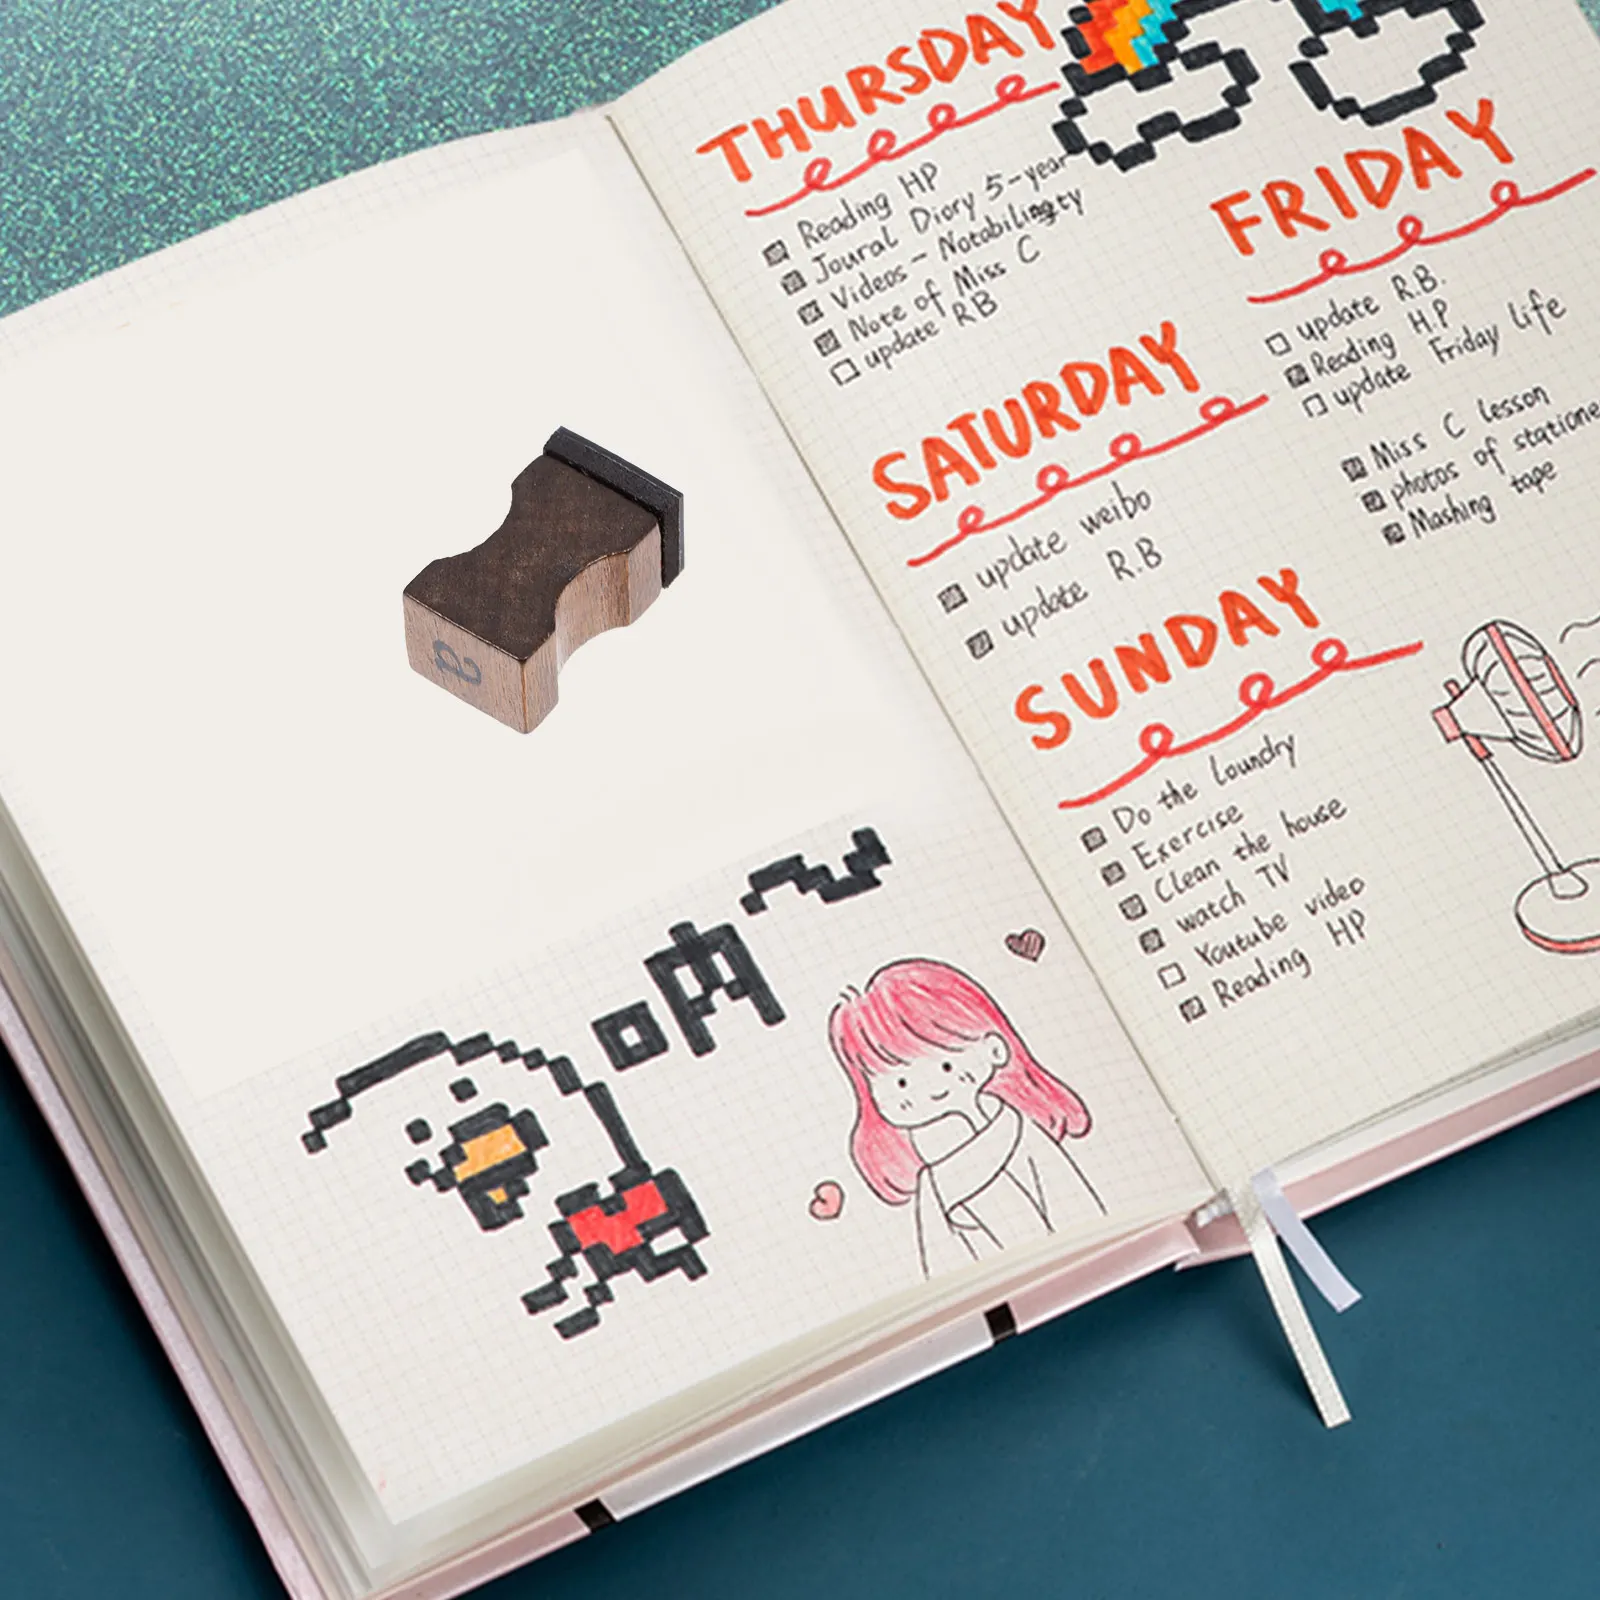 a
呐~
THURSDAY
Reading HP
Joural Diory 5-year
Videos - Notability
Note of Miss C
update RB
FRIDAY
update R.B.
Reading H.P
update Friday life
Miss C lesson
photos of statione
Mashing tape
SATURDAY
update weibo
update R.B
SUNDAY
Do the loundry
Exercise
Clean the house
watch TV
Youtube video
Reading HP